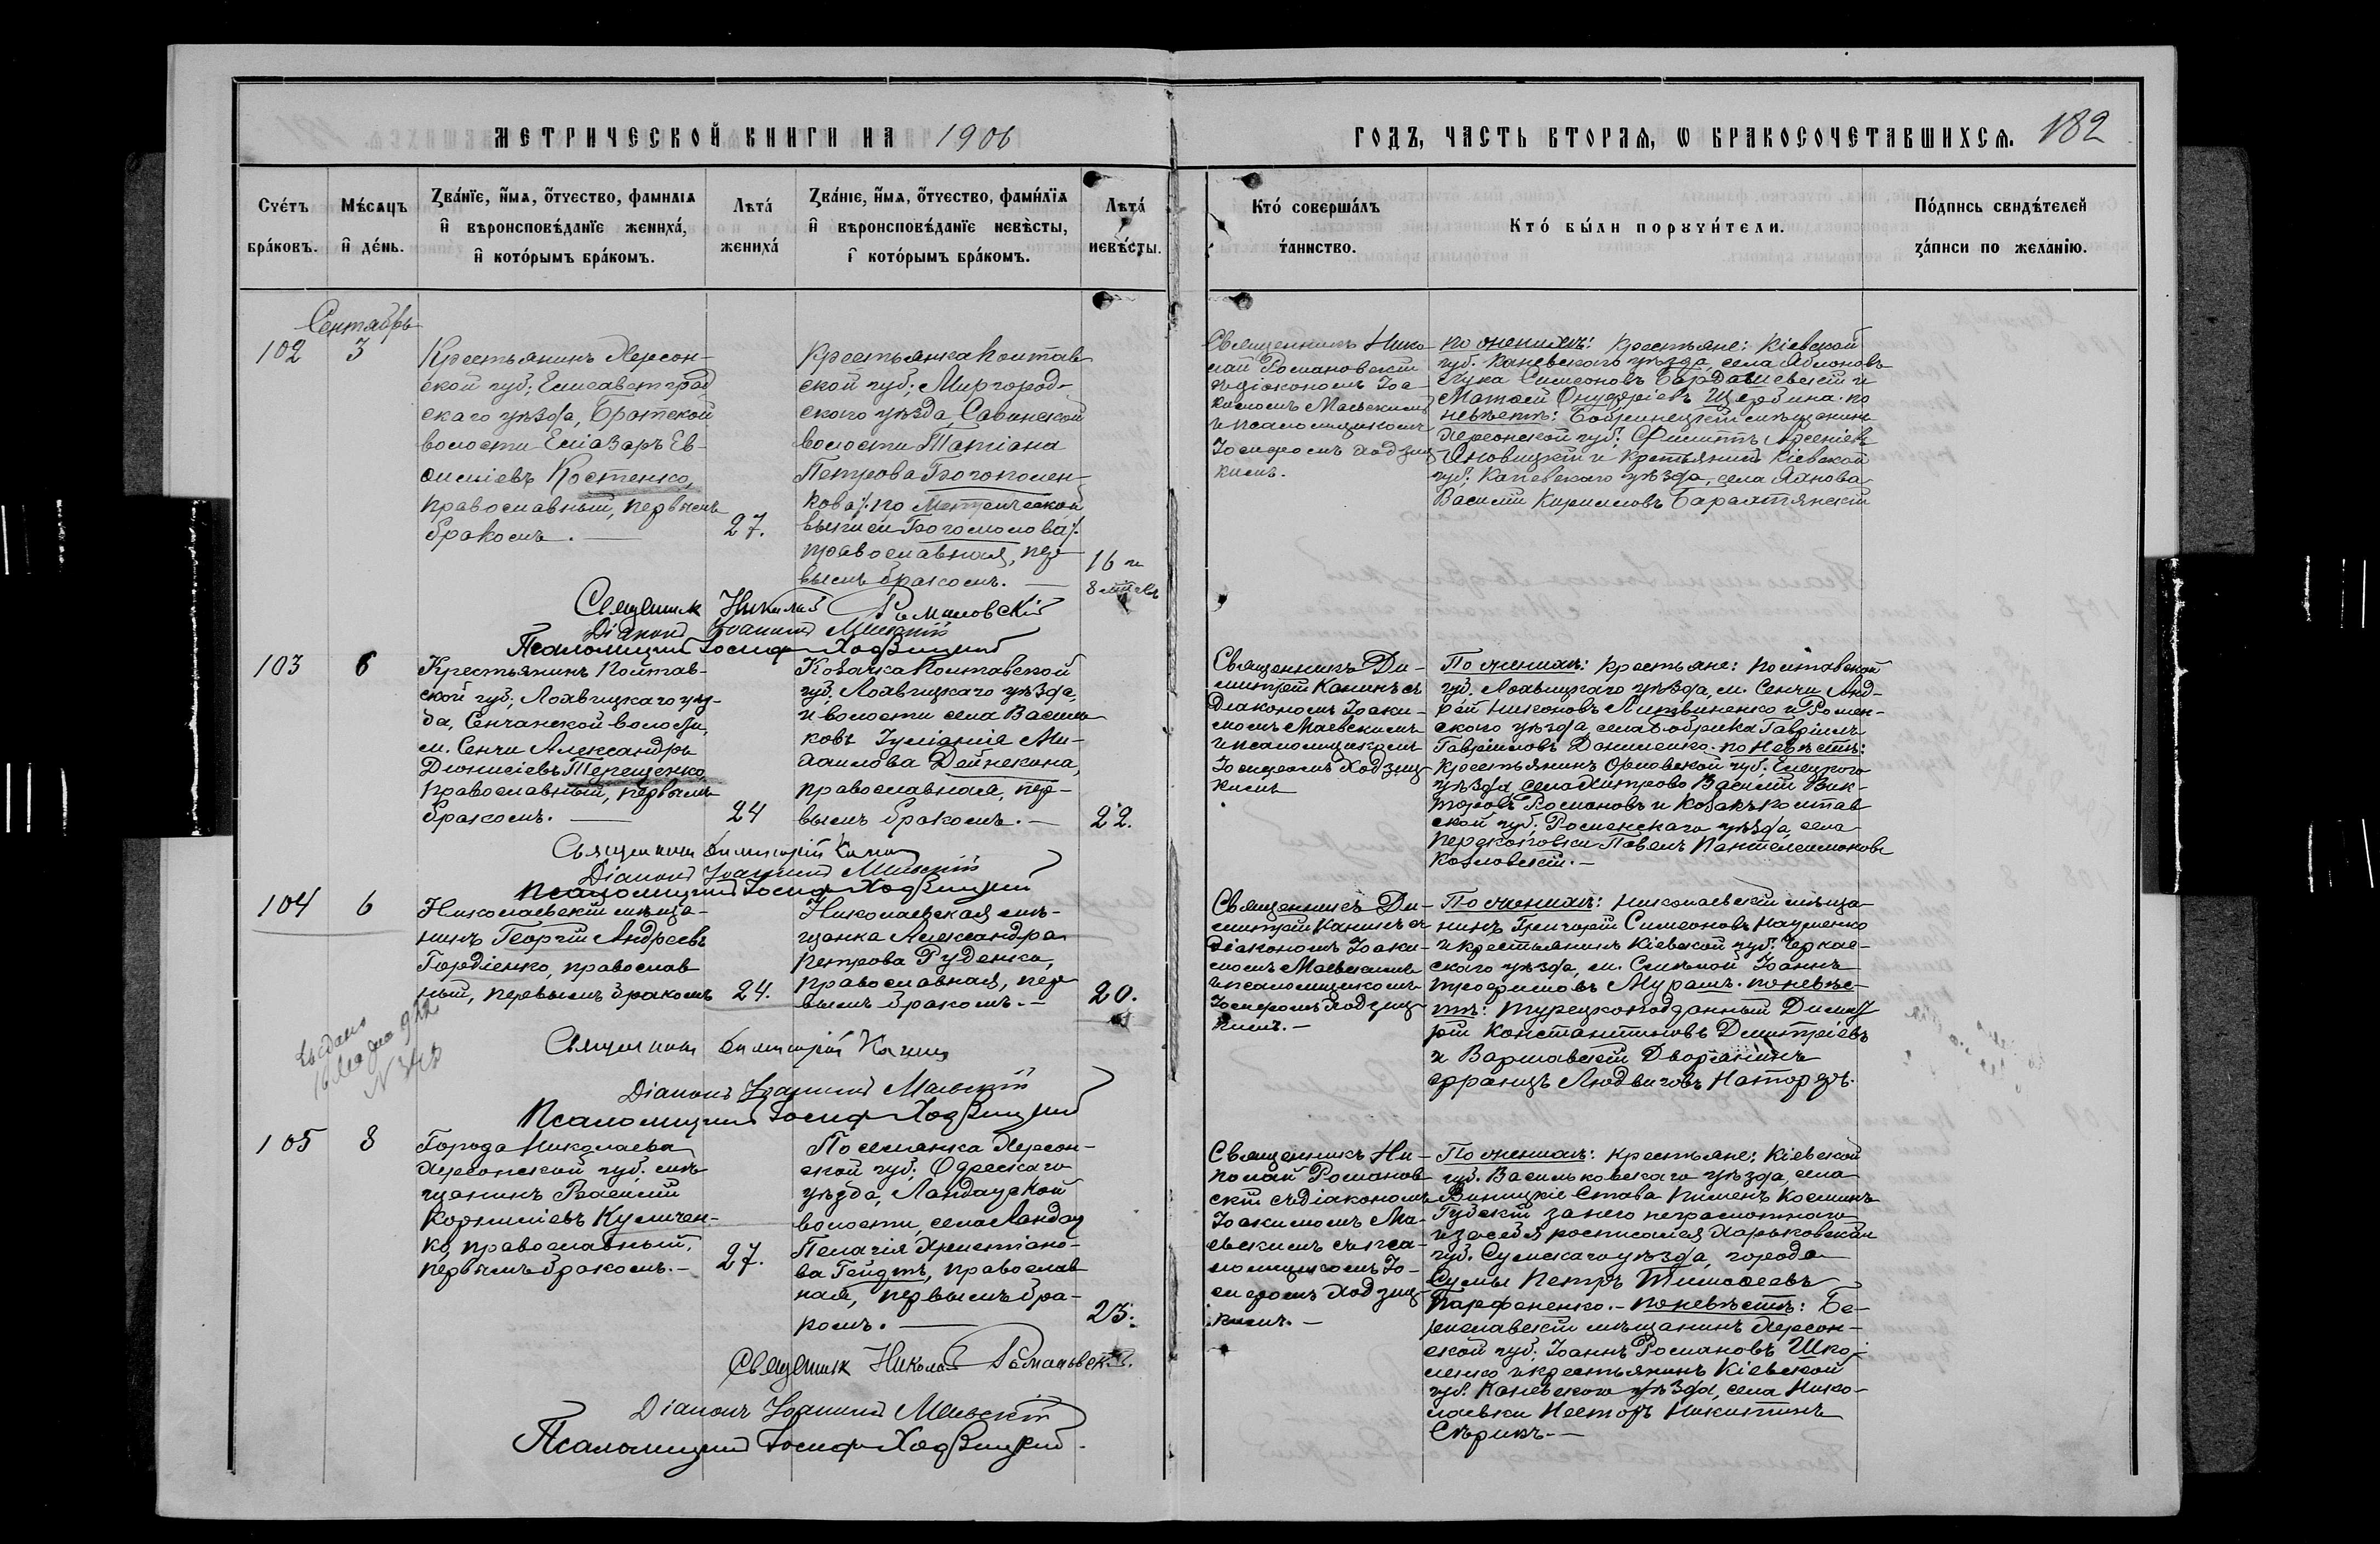 МЕТРИЧЕСКОЙ КНИГИ НА 1906
ГОДЪ, ЧАСТЬ ВТОРАЯ, Ѡ БРАКОСОЧЕТАВШИХСЯ. 182
Счетъ браковъ.
Мѣсяцъ и день.
Званіе, имя, отчество, фамилія
и вѣроисповѣданіе жениха,
и которымъ бракомъ.
Лѣта жениха
Званіе, имя, отчество, фамилія
и вѣроисповѣданіе невѣсты,
и которымъ бракомъ.
Лѣта невѣсты.
Кто совершалъ таинство.
Кто были поручители.
Подпись свидѣтелей
записи по желанію.
Сентябрь
102 3
Крестьянинъ Херсон-
ской губ; Елисаветград
скаго уѣзда, Братской
волости Еліазаръ Ев-
Костенко,
православный, первымъ
бракомъ.
27.
Крестьянка Полтав
ской губ; Миргород-
скаго уѣзда, Савинской
волости Татіана
Петрова
по метрической
выписи Богомолова
православная, пер
вымъ бракомъ.
16 и
8 мѣс.
Священникъ Нико
лай Романовскій
съ діакономъ Іоа-
кимомъ Маевскимъ
и псаломщикомъ
Іосифомъ Ходзиц-
кимъ.
по женихѣ: крестьяне: Кіевской
губ. Каневскаго уѣзда, села Яблоновъ
Лука Симеоновъ Бардашевскій и
Матѳей Онуфріевъ Щербина. по
невѣстѣ: Бобринецкій мѣщанинъ
Херсонской губ; Филиппъ Арсеніевъ
Яновицкій и крестьянинъ Кіевской
губ; Каневскаго уѣзда, села
Василій Кирилловъ
Священникъ Николай Романовскій
Діаконъ Іоакимъ Маевскій
Псаломщикъ Іосифъ Ходзицкій
103 6
Крестьянинъ Полтав-
ской губ; Лохвицкаго уѣз-
да, Сенчанской волости,
м. Сенчи Александръ
Діонисіевъ Терещенко,
православный, первымъ
бракомъ.
24
Козачка Полтавской
губ. Лохвицкаго уѣзда,
и волости села Васильковъ
Іуліанія Ми-
хаилова Дейнекина,
православная, пер-
вымъ бракомъ.
22.
Священникъ Ди-
митрій Канинъ съ
діакономъ Іоаки-
момъ Маевскимъ
и псаломщикомъ
Іосифомъ Ходзиц-
кимъ
По женихѣ: крестьяне: Полтавской
губ. Лохвицкаго уѣзда, м. Сенчи Анд-
рей Никоновъ Литвиненко и Ромен-
скаго уѣзда, села Бобрика Гавріилъ
Гавріиловъ Даниленко. по невѣстѣ:
крестьянинъ Орловской губ. Елецкаго
уѣзда, села Дмитрово Василій Вик-
торовъ Романовъ и козакъ Полтав
ской губ. Роменскаго уѣзда, села
Перекоповки Павелъ Пантелеимоновъ
Козловскій.
Священникъ Димитрій Канинъ
Діаконъ Іоакимъ Маевскій
Псаломщикъ Іосифъ Ходзицкій
104 6
Николаевскій мѣща-
нинъ Георгій Андреевъ
Гордіенко, православ
ный, первымъ бракомъ
24.
Николаевская мѣ-
щанка Александра
Петрова Руденко,
православная, пер
вымъ бракомъ.
20.
Священникъ Ди-
митрій Канинъ съ
діакономъ Іоаки-
момъ Маевскимъ
и псаломщикомъ
Іосифомъ Ходзиц-
кимъ.
По женихѣ: Николаевскій мѣща-
нинъ Григорій Симеоновъ Науменко
и крестьянинъ Кіевской губ. Черкас-
скаго уѣзда, м. Смѣлой Іоаннъ
Трофимовъ Мурашъ. по невѣс-
тѣ: турецкоподданный Димит
рій Константиновъ Дмитріевъ
и Варшавскій дворянинъ
Францъ Людвиговъ
Священникъ Димитрій Канинъ
Діаконъ Іоакимъ Маевскій
Псаломщикъ Іосифъ Ходзицкій
105 8
Города Николаева
Херсонской губ. мѣ-
щанинъ Василій
Корниліевъ Куличен-
ко, православный,
первымъ бракомъ.
27.
Поселянка Херсон-
ской губ; Одесскаго
уѣзда, Ландауской
волости, села Ландау
Пелагія Христіано-
ва Гейдтъ, православ
ная, первымъ бра-
комъ.
23.
Священникъ Ни-
колай Романов
скій съ діакономъ
Іоакимомъ Ма-
евскимъ и пса-
ломщикомъ Іо-
сифомъ Ходзиц-
кимъ.
По женихѣ: крестьяне: Кіевской
губ. Васильковскаго уѣзда, села
Винницкіе Ставы Пименъ Косминъ
Губскій за него неграмотнаго
и за себя росписался Харьковской
губ. Сумскаго уѣзда, города
Сумы Петръ Тимоѳеевъ
Парфененко. по невѣстѣ: Бе-
риславскій мѣщанинъ Херсон-
ской губ. Іоаннъ Романовъ Шко-
ленко и крестьянинъ Кіевской
губ. Каневскаго уѣзда, села Нико-
лаевки Несторъ Никитинъ
Скрипъ.
Священникъ Николай Романовскій.
Діаконъ Іоакимъ Маевскій
Псаломщикъ Іосифъ Ходзицкій.